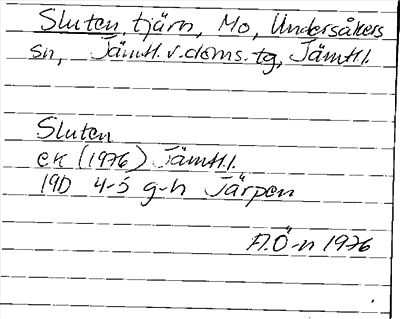 Sluten, tjärn, Mo, Undersåkers
sn, Jämtl. v. doms. tg, Jämtl.
Sluten
ek (1976) Jämtl.
19D 4-5 g-h Järpen
A.Ö-n 1976